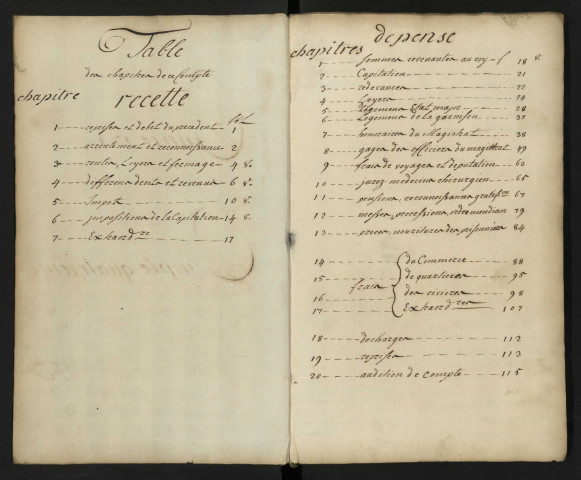 Table
des chapitres de ce Compte
chapitre recette
fol
1 reprises et debet du precedent 1
2 arrentement et reconnoissance 2
3 rentes, Loyers et fermages 4 8.
4 differens dents et revenus 6 8.
5 Imposts 10 8.
6 impositions de la Capitation 14 8.
7 Extraord.res 17
depense
chapitres
1 sommes revenantes au roy f 18 8.
2 Capitation 21
3 redevances 22
4 Loyers 24
5 Logemens Etat major 28
6 Logemens de la garnison 37
7 honoraires du Magistrat 38
8 gages des officiers du magistrat 49
9 frais de voyages et deputation 60
10 jurez medecins chirurgiens 65
11 pensions, reconnoissance gratif.ons 67
12 messes, processions, ordre mendians 79
13 proces, nourritures des prisonniers 84
14 du Commerce 88
15 de quartiers 95
frais
16 des rivieres 98
17 Extraord.res 107
18 decharges 112
19 reprises 113
20 audition de compte 115